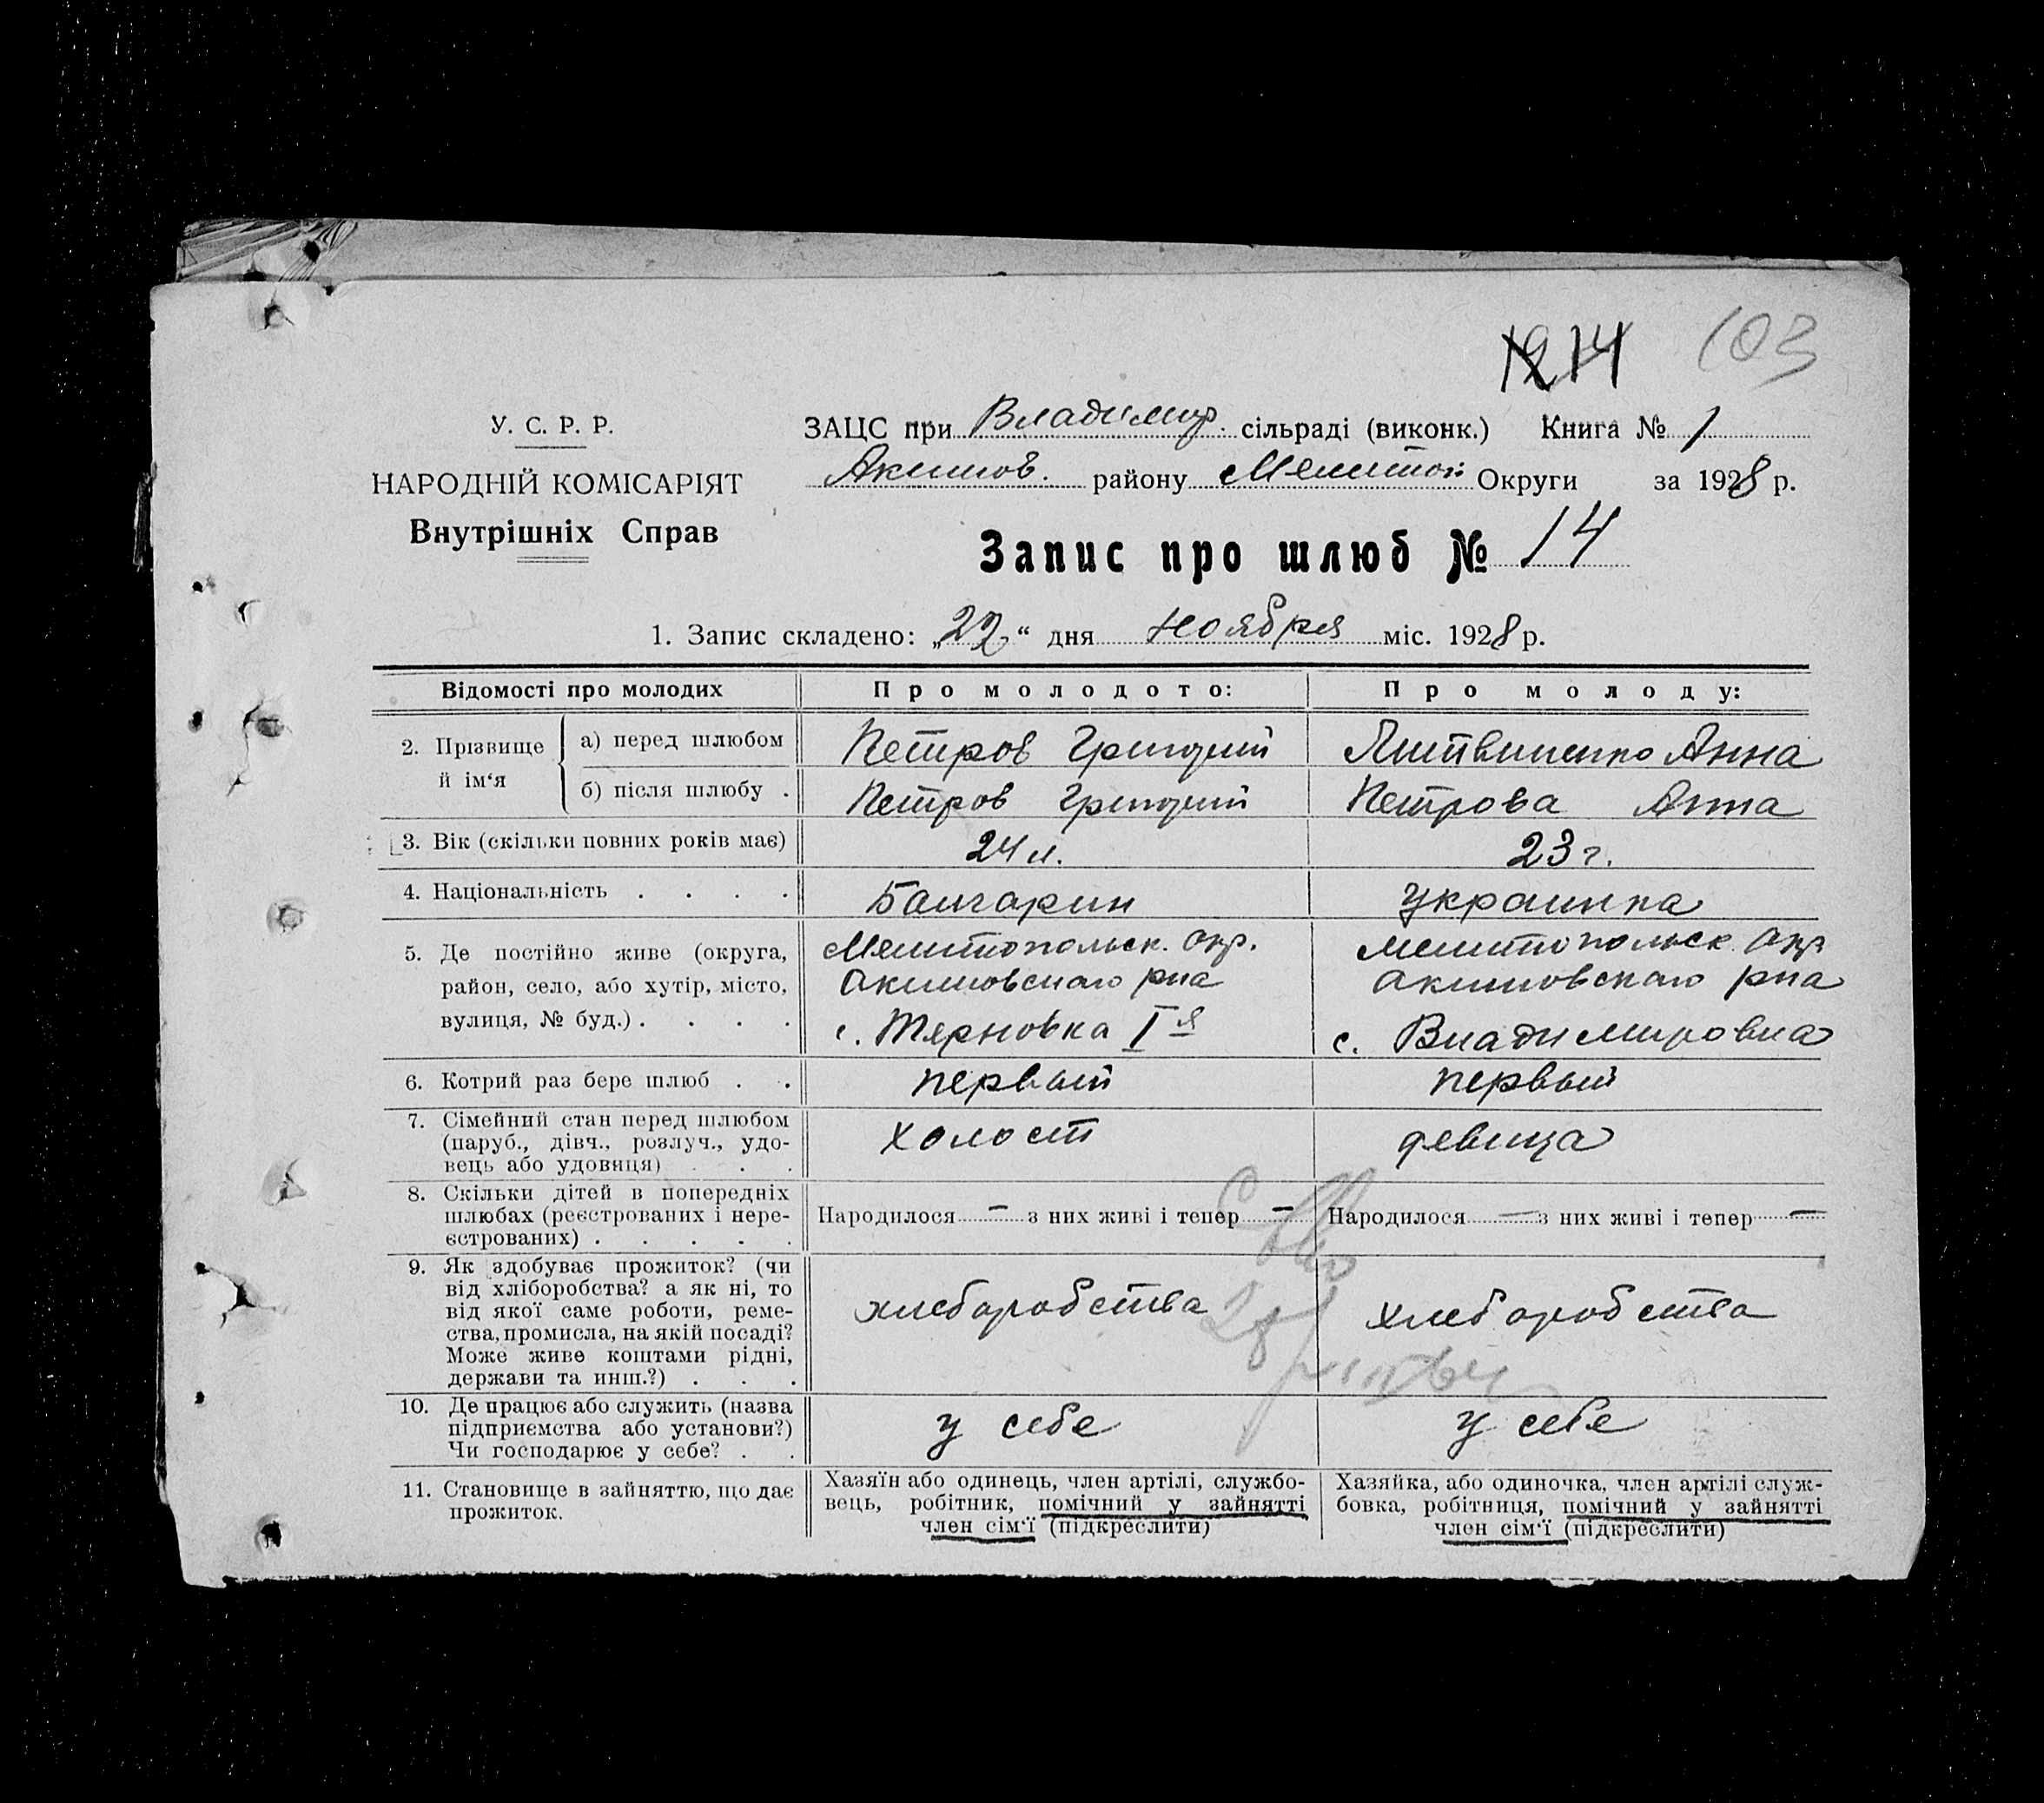 14 103
У. С. Р. Р.
НАРОДНІЙ КОМІСАРІЯТ
Внутрішніх Справ
ЗАЦС при Владимир. сільраді (виконк.) Книга № 1
Акимов. району Мелитоп Округи за 1928 р.
Запис про шлюб № 14
1. Запис складено: „22“ дня ноября міс. 1928 р.
Відомості про молодих Про молодого: Про молоду:
2. Прізвище й ім‘я
а) перед шлюбом Петров Григорий Литвиненко Анна
б) після шлюбу . Петров Григорий Петрова Анна
3. Вік (скільки повних років має) 24 л. 23 г.
4. Національність . . . . Болгарин украинка
5. Де постійно живе (округа,
район, село, або хутір, місто,
вулиця, № буд.) . . . .
Мелитопольск. Окр.
Акимовскаго рна
с. Терновка I я
Мелитопольск Окр
Акимовскаго рна
с. Владимировка
6. Котрий раз бере шлюб . . первый первый
7. Сімейний стан перед шлюбом
(паруб., дівч., розлуч., удо-
вець або удовиця) . . .
холост девица
8. Скільки дітей в попередніх
шлюбах (реєстрованих і нере-
єстрованих) . . . . .
Народилося — з них живі і тепер — Народилося — з них живі і тепер —
9. Як здобуває прожиток? (чи
від хліборобства? а як ні, то
від якої саме роботи, реме-
ства, промисла, на якій посаді?
Може живе коштами рідні,
держави та инш.?) . . .
хлеборобства хлеборобства
10. Де працює або служить (назва
підприємства або установи?)
Чи господарює у себе? . .
у себе у себе
11. Становище в зайняттю, що дає
прожиток.
Хазяїн або одинець, член артілі, службо-
вець, робітник, помічний у зайнятті
член сім‘ї (підкреслити)
Хазяйка, або одиночка, член артілі служ-
бовка, робітниця, помічний у зайнятті
член сім‘ї (підкреслити)